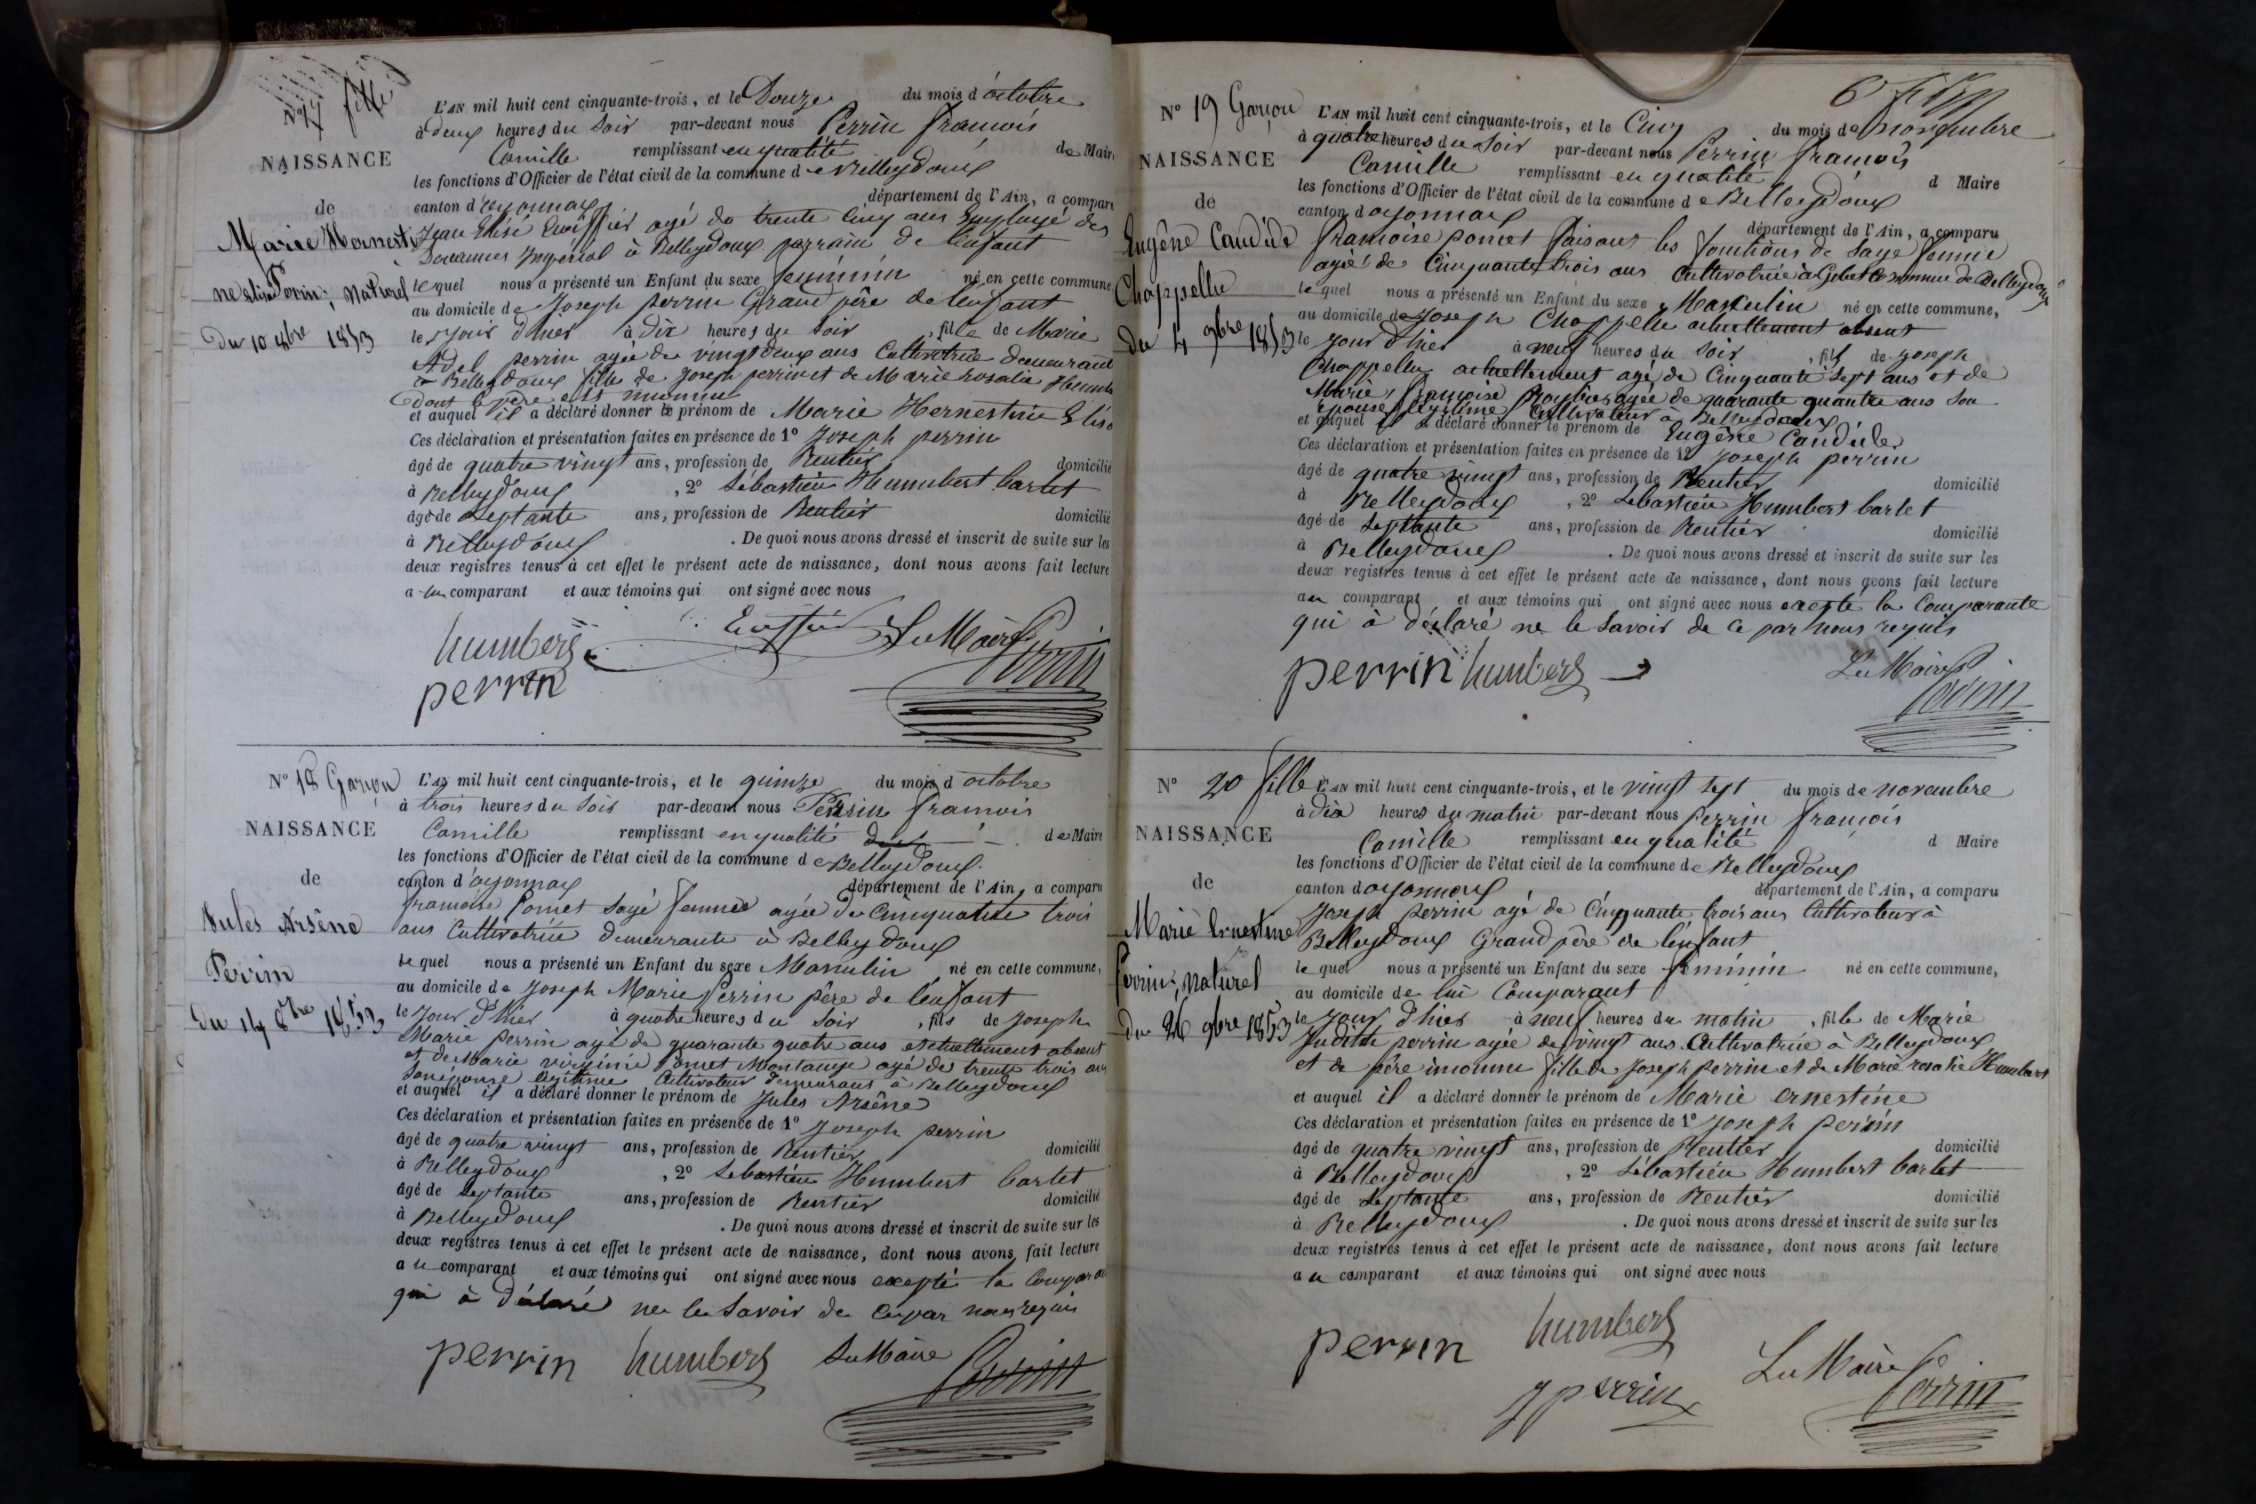 N° 17 fille
NAISSANCE
de
Marie Hernesti
ne elise Perrin, Naturel
Du 10 8bre 1853
L'AN mil huit cent cinquante-trois, et le Douze du mois d'octobre
à deux heures du Soir par-devant nous Perrin françois
Camille remplissant en qualité de Maire
les fonctions d'Officier de l'état civil de la commune de Belleydoux
canton d'oyonnax département de l'Ain, a comparu
Jean Elisé agé de trente Cinq ans Employé des
Douannes Impérial à Belleydoux parrain de l'enfant
lequel nous a présenté un Enfant du sexe féminin né en cette commune,
au domicile de Joseph perrin Grand père de lenfant
le jour d'hier à dix heures du Soir, fille de Marie
Adel perrin agée de vingt deux ans Cultivatrice demeurant
à Belleydoux fille de Joseph perrin et de Marie rosalie Humbe
dont le père est inconnu
et auquel il a déclaré donner le prénom de Marie Hernestine Elise
Ces déclaration et présentation faites en présence de 1° Joseph perrin
âgé de quatre vingt ans, profession de Rentier domicilié
à Belleydoux, 2° Sébastien Humbert barlet
âgé de Septante ans, profession de Rentier domicilié
à Belleydoux. De quoi nous avons dressé et inscrit de suite sur les
deux registres tenus à cet effet le présent acte de naissance, dont nous avons fait lecture
au comparant et aux témoins qui ont signé avec nous
humbert Le Maire Perrin
perrin
N° 18 Garçon
NAISSANCE
de
Jules Arsène
Perrin
du 14 8bre 1853
L'AN mil huit cent cinquante-trois, et le quinze du mois d'octobre
à trois heures du Soir par-devant nous Perrin françois
Camille remplissant en qualité de Maire
les fonctions d'Officier de l'état civil de la commune de Belleydoux
canton d'oyonnax département de l'Ain, a comparu
françoise Poncet Sage femme agée de Cinquante trois
ans Cultivatrice demeurante à Belleydoux
lequel nous a présenté un Enfant du sexe Masculin né en cette commune,
au domicile de Joseph Marie Perrin père de l'enfant
le jour d'hier à quatre heures du Soir, fils de Joseph
Marie perrin agé de quarante quatre ans actuellement absent
et de Marie virginie Poncet Montange agé de trente trois ans
Son épouse légitime Cultivateur demeurant à Belleydoux
et auquel il a déclaré donner le prénom de Jules Arsène
Ces déclaration et présentation faites en présence de 1° Joseph perrin
âgé de quatre vingt ans, profession de Rentier domicilié
à Belleydoux, 2° Sébastien Humbert barlet
âgé de Septante ans, profession de Rentier domicilié
à Belleydoux. De quoi nous avons dressé et inscrit de suite sur les
deux registres tenus à cet effet le présent acte de naissance, dont nous avons fait lecture
au comparant et aux témoins qui ont signé avec nous excepté la Comparan
qui à déclaré ne le Savoir de ce par nous requis
perrin humbert Le Maire Perrin
N° 19 Garçon
NAISSANCE
de
Eugène Candide
Chappellu
du 4 9bre 1853
L'AN mil huit cent cinquante-trois, et le Cinq du mois de novembre
à quatre heures du Soir par-devant nous Perrin françois
Camille remplissant en qualité d Maire
les fonctions d'Officier de l'état civil de la commune de Belleydoux
canton d'oyonnax département de l'Ain, a comparu
françoise poncet faisant les fonctions de Sage femme
agée de Cinquante trois ans Cultivatrice à Gobet Commune de Belleydoux
lequel nous a présenté un Enfant du sexe Masculin né en cette commune,
au domicile de Joseph Chappellu actuellement absent
le jour d'hier à neuf heures du Soir, fils de Joseph
Chappellu actuellement agé de Cinquante Sept ans et de
Marie françoise agée de quarante quantre ans Son
épouse légitime Cultivateur à Belleydoux
et auquel il a déclaré donner le prénom de Eugène Candide
Ces déclaration et présentation faites en présence de 1° Joseph perrin
âgé de quatre vingt ans, profession de Rentier domicilié
à Belleydoux, 2° Sébastien Humbert barlet
âgé de Septante ans, profession de Rentier domicilié
à Belleydoux. De quoi nous avons dressé et inscrit de suite sur les
deux registres tenus à cet effet le présent acte de naissance, dont nous avons fait lecture
au comparant et aux témoins qui ont signé avec nous excepté la Comparante
qui à déclaré ne le Savoir de ce par nous requis
perrin humbert Le Maire Perrin
N° 20 fille
NAISSANCE
de
Marie Ernestine
Perrin, naturel
du 26 9bre 1853
L'AN mil huit cent cinquante-trois, et le vingt sept du mois de novembre
à dix heures du matin par-devant nous Perrin françois
Camille remplissant en qualité d Maire
les fonctions d'Officier de l'état civil de la commune de Belleydoux
canton d'oyonnax département de l'Ain, a comparu
Joseph perrin agé de Cinquante trois ans Cultivateur à
Belleydoux Grand père de l'enfant
lequel nous a présenté un Enfant du sexe féminin né en cette commune,
au domicile de lui Comparant
le jour d'hier à neuf heures du matin, fille de Marie
Judith perrin agée de vingt ans Cultivatrice à Belleydoux
et de père inconnu fille de Joseph perrin et de Marie rosalie Humbert
et auquel il a déclaré donner le prénom de Marie ernestine
Ces déclaration et présentation faites en présence de 1° Joseph perrin
âgé de quatre vingt ans, profession de Rentier domicilié
à Belleydoux, 2° Sébastien Humbert barlet
âgé de Septante ans, profession de Rentier domicilié
à Belleydoux. De quoi nous avons dressé et inscrit de suite sur les
deux registres tenus à cet effet le présent acte de naissance, dont nous avons fait lecture
au comparant et aux témoins qui ont signé avec nous
perrin humbert
J perrin Le Maire Perrin